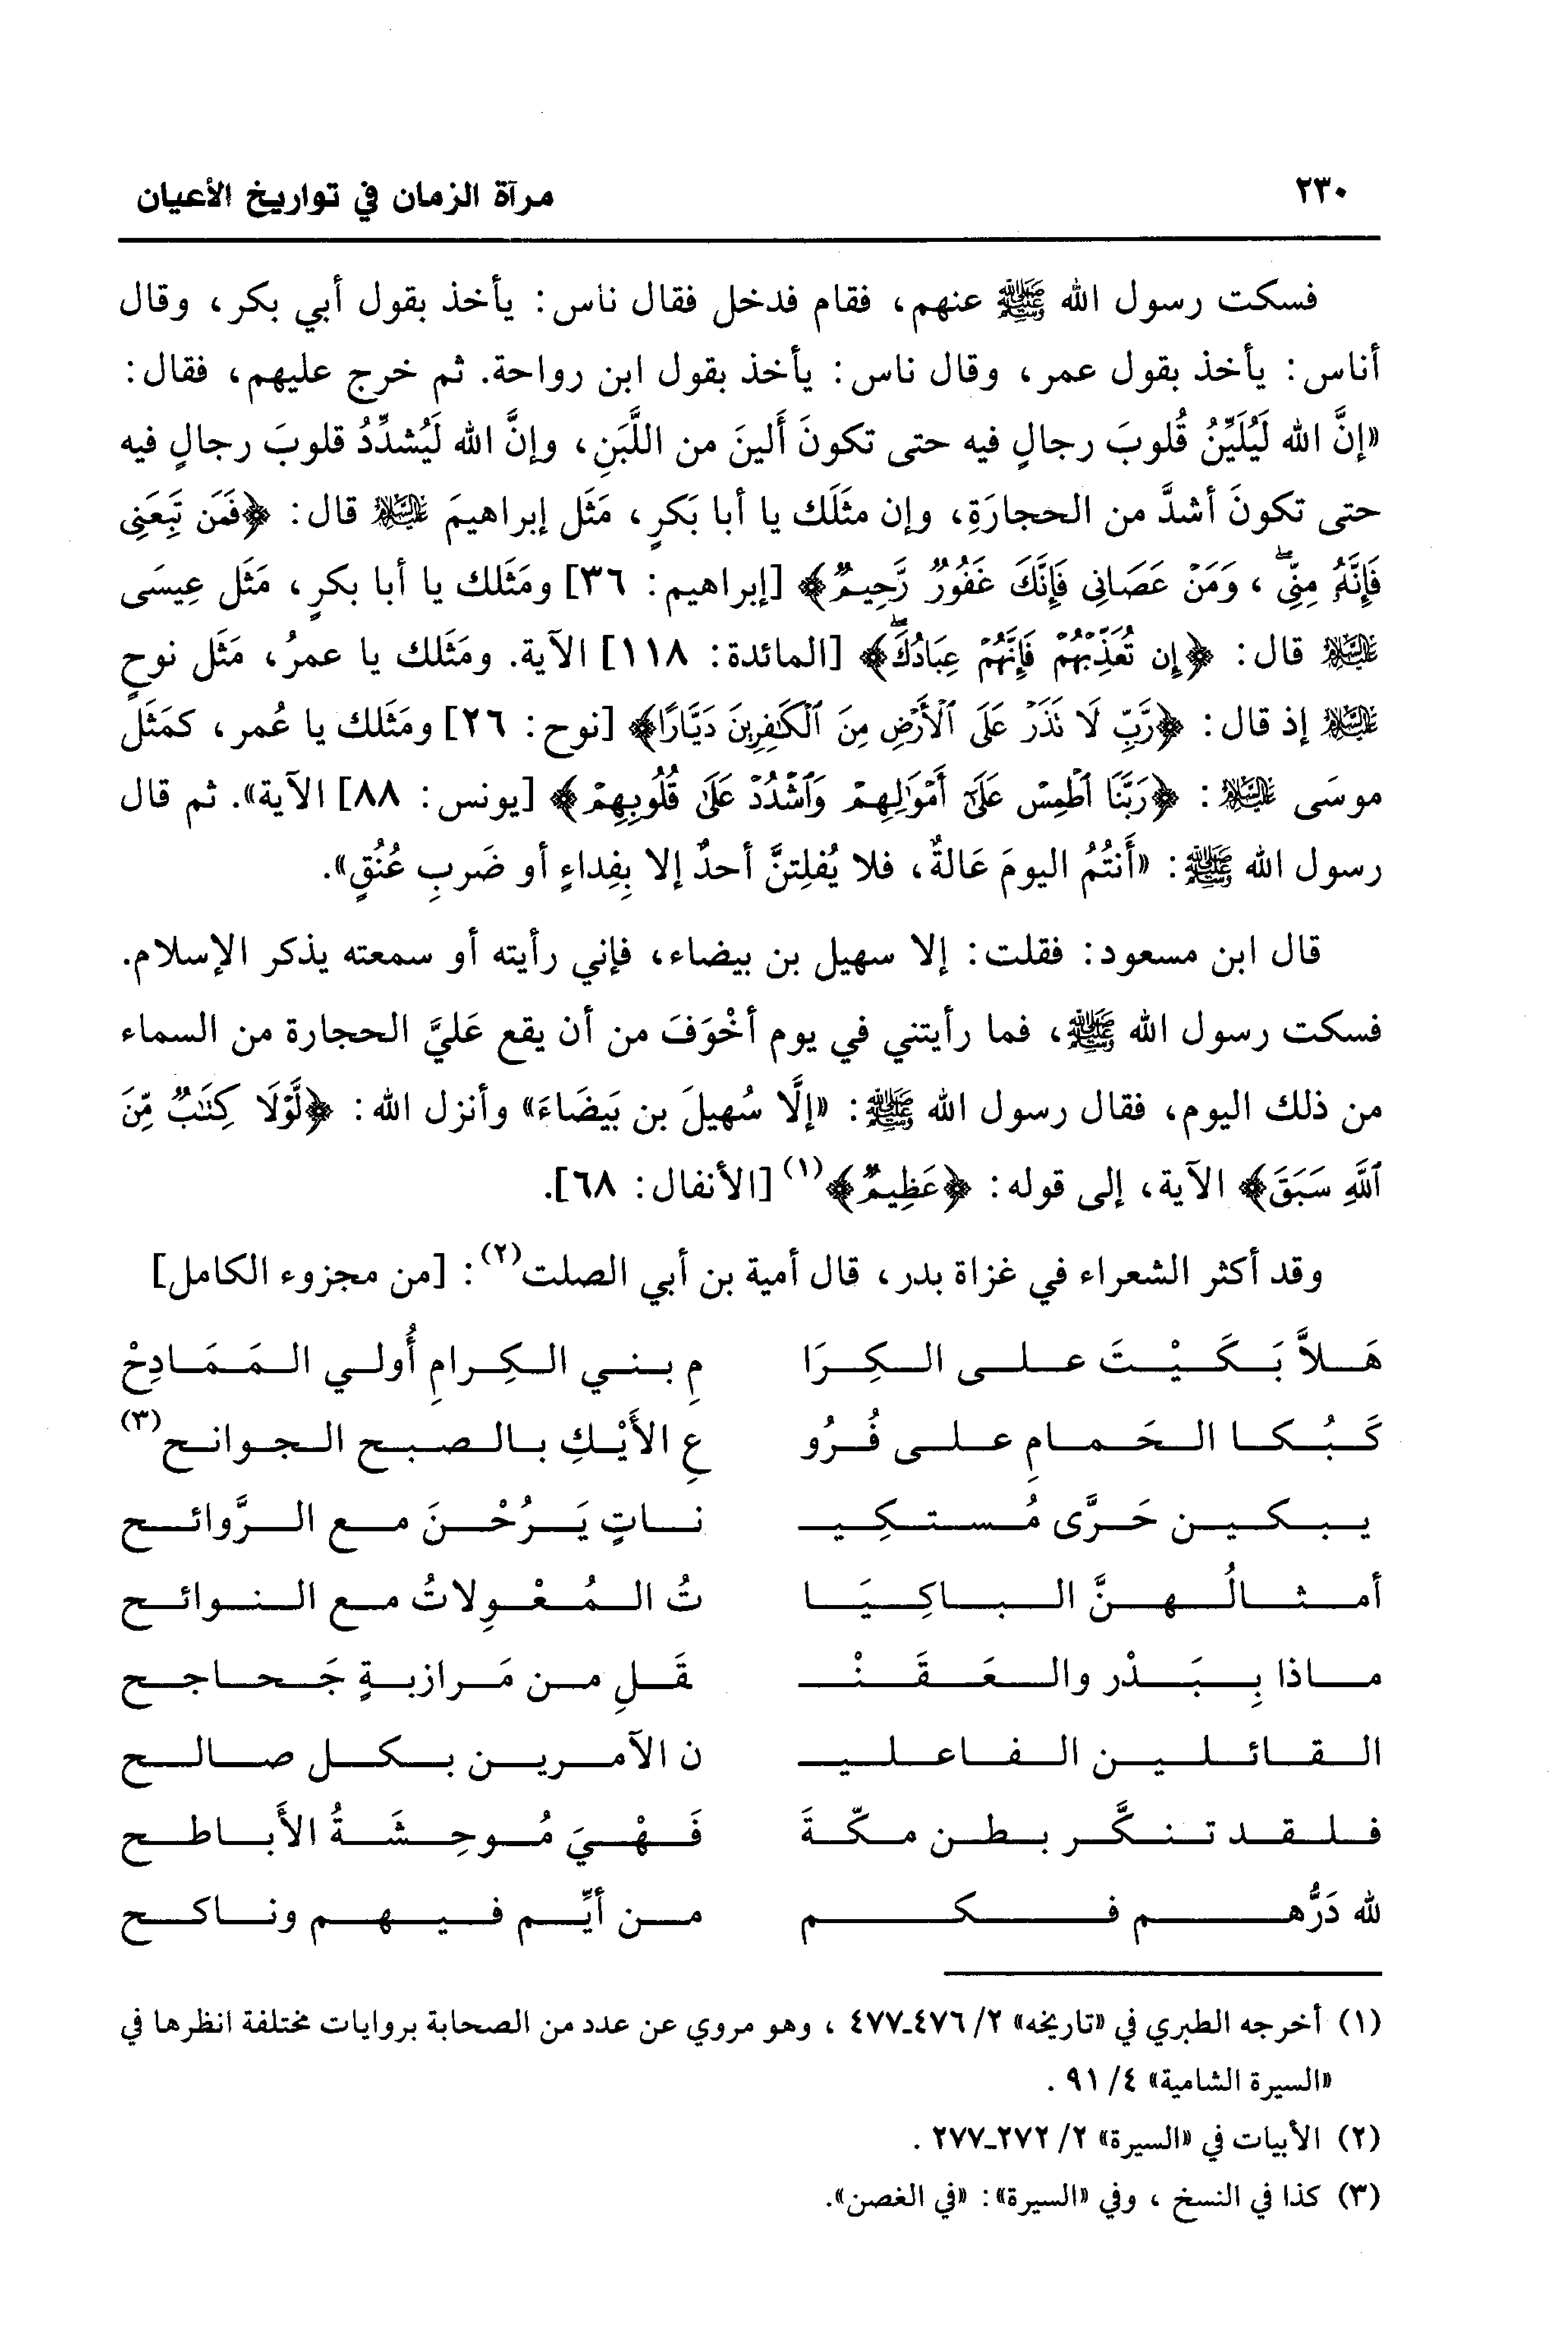 ٢٣٠ مرآة الزمان في تواريخ الأعيان
فسكت رسول الله ﷺ عنهم، فقام فدخل فقال ناس: يأخذ بقول أبي بكر، وقال
أناس: يأخذ بقول عمر، وقال ناس: يأخذ بقول ابن رواحة. ثم خرج عليهم، فقال:
«إنَّ الله لَيُلَيِّنُ قُلوبَ رجالٍ فيه حتى تكونَ أَلينَ من اللَّبَنِ، وإنَّ الله لَيُشدِّدُ قلوبَ رجالٍ فيه
حتى تكونَ أشدَّ من الحجارَةِ، وإن مثَلَك يا أبا بَكرٍ، مَثَل إبراهيمَ عليه السلام قال: ﴿فَمَن تَبِعَنِى
فَإِنَّهُۥ مِنِّىۖ، وَمَنْ عَصَانِى فَإِنَّكَ غَفُورٌ رَّحِيمٌ﴾ [إبراهيم: ٣٦] ومَثَلك يا أبا بكرٍ، مَثَل عِيسَى
عليه السلام قال: ﴿إِن تُعَذِّبْهُمْ فَإِنَّهُمْ عِبَادُكَۖ﴾ [المائدة: ١١٨] الآية. ومَثَلك يا عمرُ، مَثَل نوحٍ
عليه السلام إذ قال: ﴿رَّبِّ لَا تَذَرْ عَلَى ٱلْأَرْضِ مِنَ ٱلْكَٰفِرِينَ دَيَّارًا﴾ [نوح: ٢٦] ومَثَلك يا عُمر، كمَثَل
موسَى عليه السلام: ﴿رَبَّنَا ٱطْمِسْ عَلَىٰٓ أَمْوَٰلِهِمْ وَٱشْدُدْ عَلَىٰ قُلُوبِهِمْ﴾ [يونس: ٨٨] الآية». ثم قال
رسول الله ﷺ: «أَنتُمُ اليومَ عَالةٌ، فلا يُفلِتنَّ أحدٌ إلا بِفِداءٍ أو ضَربِ عُنُقٍ».
قال ابن مسعود: فقلت: إلا سهيل بن بيضاء، فإني رأيته أو سمعته يذكر الإسلام.
فسكت رسول الله ﷺ، فما رأيتني في يوم أخْوَفَ من أن يقع عَليَّ الحجارة من السماء
من ذلك اليوم، فقال رسول الله ﷺ: «إلَّا سُهيلَ بن بَيضَاءَ» وأنزل الله: ﴿لَّوْلَا كِتَٰبٌ مِّنَ
ٱللَّهِ سَبَقَ﴾ الآية، إلى قوله: ﴿عَظِيمٌ﴾(١) [الأنفال: ٦٨].
وقد أكثر الشعراء في غزاة بدر، قال أمية بن أبي الصلت(٢): [من مجزوء الكامل]
هَلاَّ بَكَيْتَ على الكِرَا مِ بني الكِرامِ أُولي المَمَادِحْ
كَبُكا الحَمامِ على فُرُو عِ الأَيْكِ بالصبح الجوانح(٣)
يبكين حَرَّى مُستكِيـ ناتٍ يَرُحْنَ مع الرَّوائح
أمثالُهنَّ الباكِيَا تُ المُعْوِلاتُ مع النوائح
ماذا بِبَدْر والعَقَنْـ قَلِ من مَرازبةٍ جَحاجح
القائلين الفاعليـ ن الآمرين بكل صالح
فلقد تنكَّر بطن مكّةَ فَهْيَ مُوحِشَةُ الأَباطح
لله دَرُّهم فكم من أيِّم فيهم وناكح
(١) أخرجه الطبري في «تاريخه» ٢/ ٤٧٦ـ٤٧٧ ، وهو مروي عن عدد من الصحابة بروايات مختلفة انظرها في
«السيرة الشامية» ٤/ ٩١ .
(٢) الأبيات في «السيرة» ٢/ ٢٧٢ـ٢٧٧ .
(٣) كذا في النسخ ، وفي «السيرة»: «في الغصن».